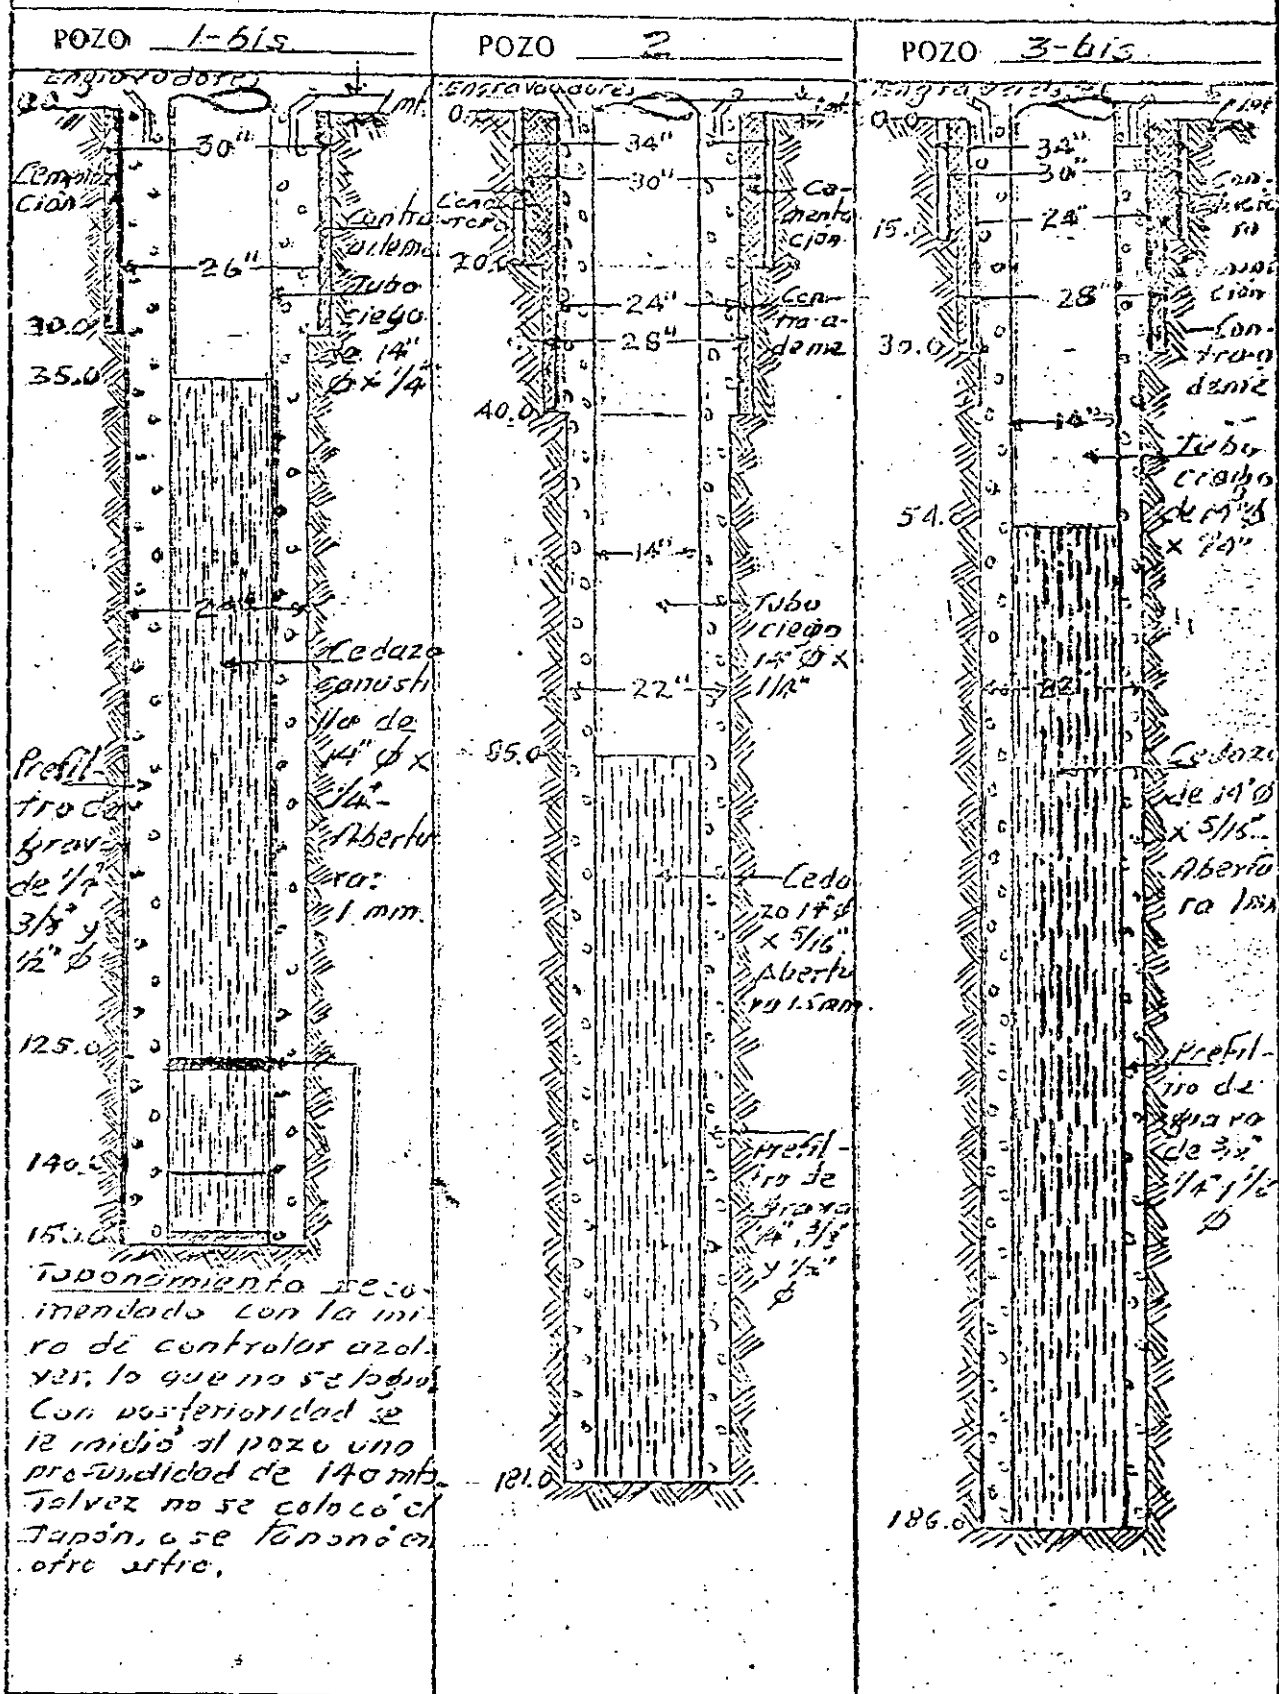 POZO 1-bis
Engravadores
0.0
1 mt.
30"
Cementa
ción
Contra
ademe
26"
Tubo
ciego
de 14"
Ø x 1/4"
30.0
35.0
24"
Cedazo
canasti
lla de
14" Ø x
1/4"-
Abertu
ra:
1 mm.
Prefil-
tro de
grava
de 1/4"
3/8" y
1/2" Ø
125.0
140.0
150.0
Taponamiento reco-
mendado con la mi-
ra de controlar azol-
ves, lo que no se logró.
Con posterioridad se
le midió al pozo una
profundidad de 140 mts.
Talvez no se colocó el
Tapón, o se taponó en
otro sitio.
POZO 2
Engravadores
0.0
1 mt.
34"
30"
Ce-
menta
ción
20.0
24"
Con-
tra-a-
deme
28"
40.0
14"
Tubo
ciego
14" Ø x
1/2"
22"
85.0
Ceda
zo 14" Ø
x 5/16"
Abertu
ra 1.5 mm.
Prefil-
tro de
grava
1/4", 3/8"
y 1/2"
Ø
181.0
POZO 3-bis
Engravadores
0.0
1 mt.
34"
30"
24"
15.0
28"
30.0
Con-
tra-a
deme
14"
Tubo
ciego
de 14" Ø
54.0
22"
Cedazo
de 14" Ø
x 5/16"
Abertu
ra 1 mm
Prefil-
tro de
grava
de 3/8"
1/4" y 1/2
Ø
186.0